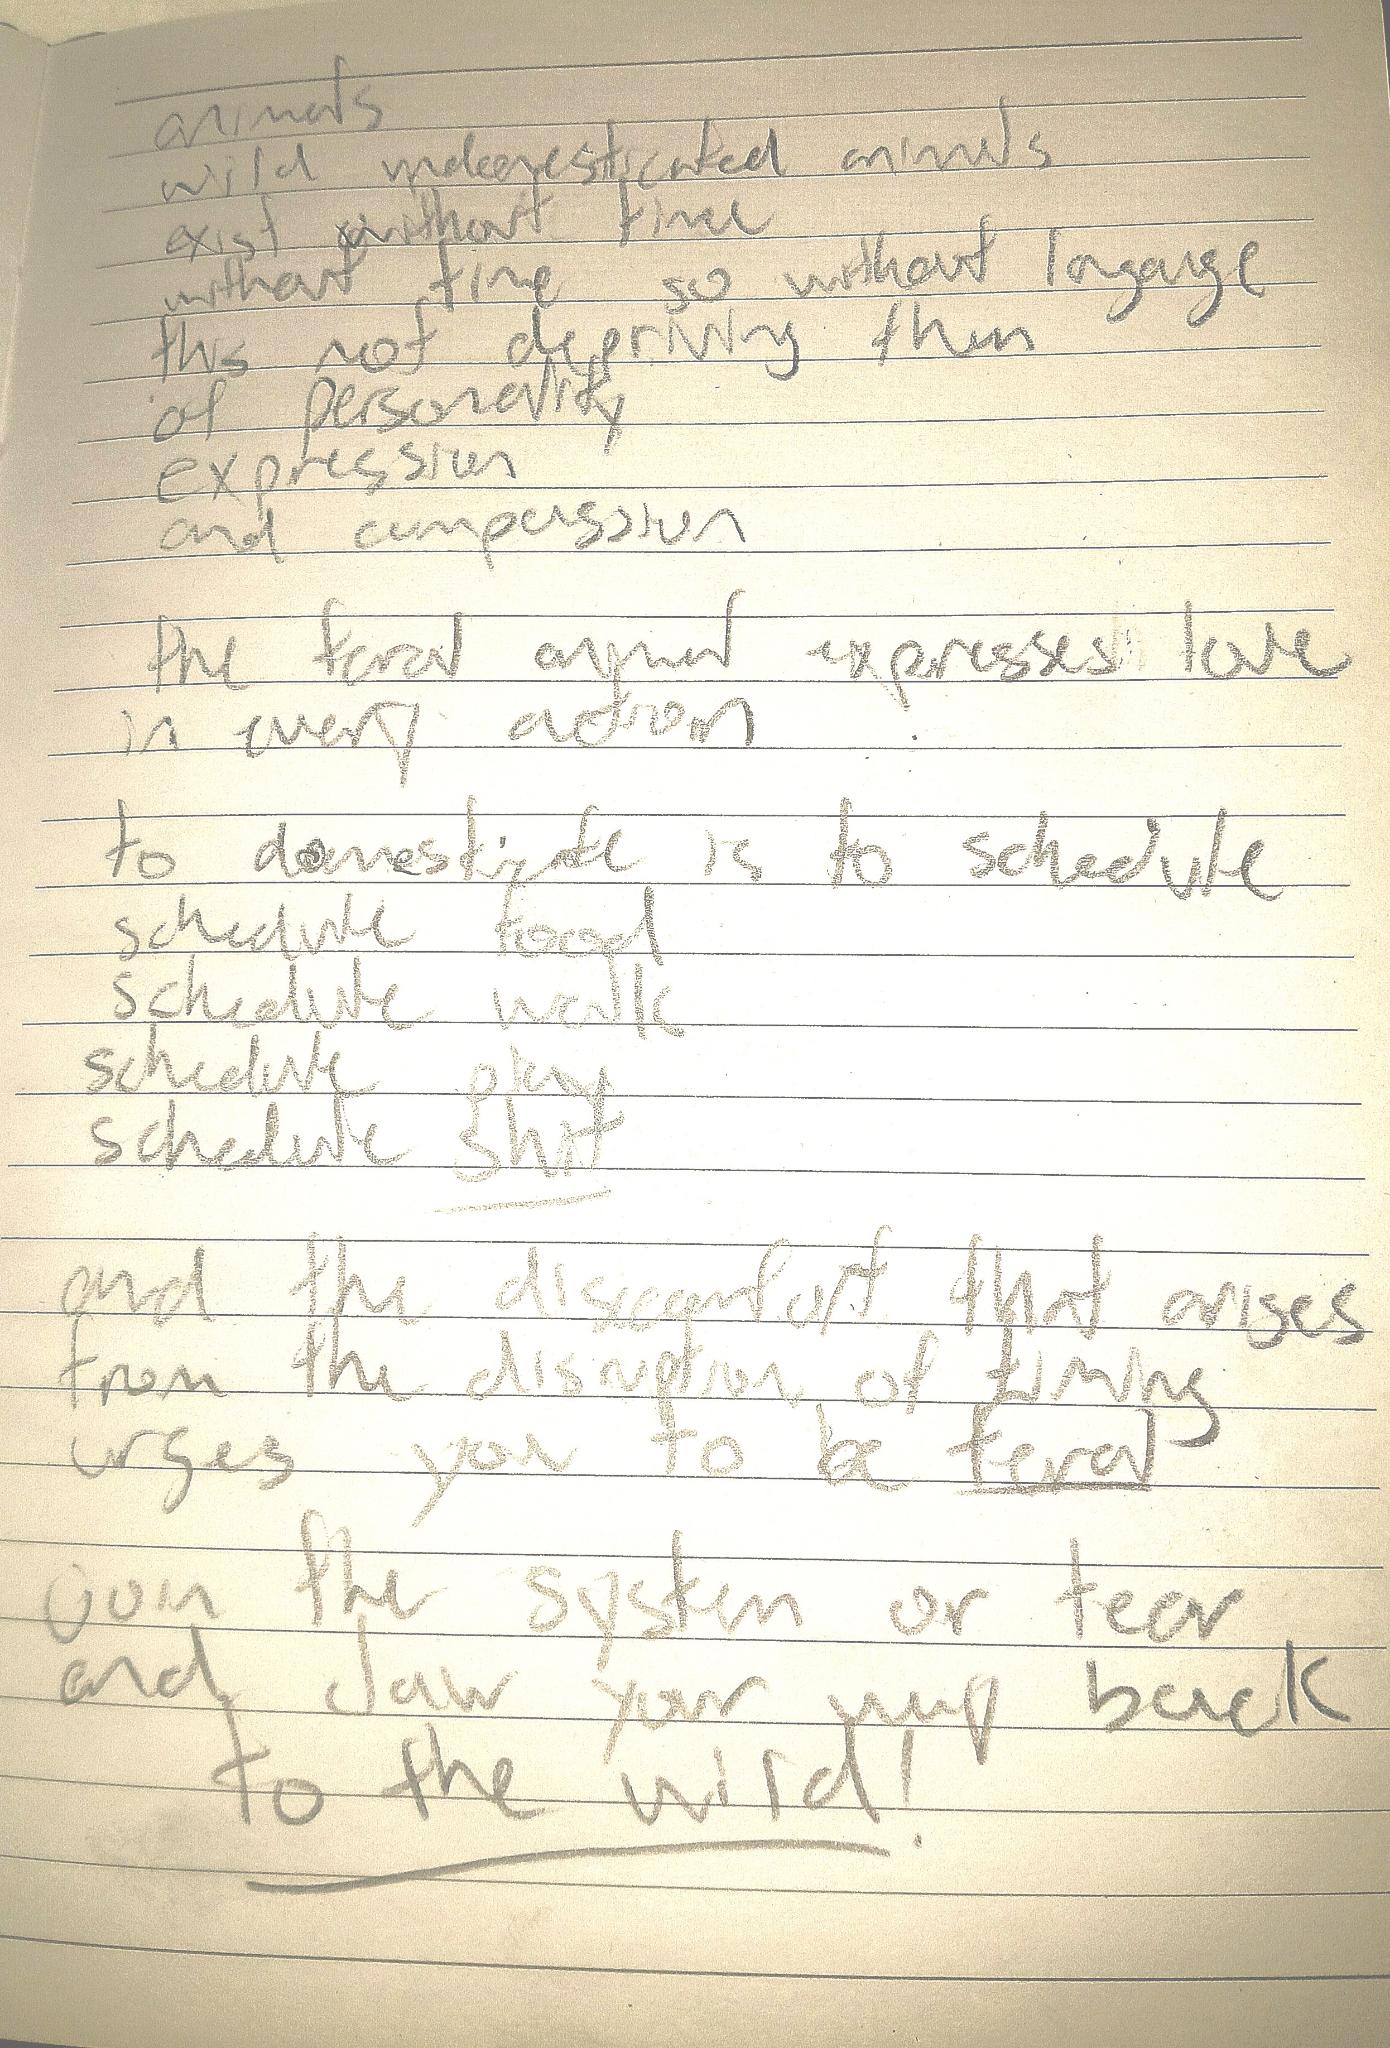 animals
wild undomesticated animals
exist without time
without time so without langauge
this not depriving them
of personality
expression
and compassion
the feral animal expresses love
in every action
to domesticate is to schedule
schedule food
schedule walk
schedule play
schedule shit
and the discomfort that arises
from the disruption of timing
urges you to be feral
join the system or tear
and claw your way back
to the wild!